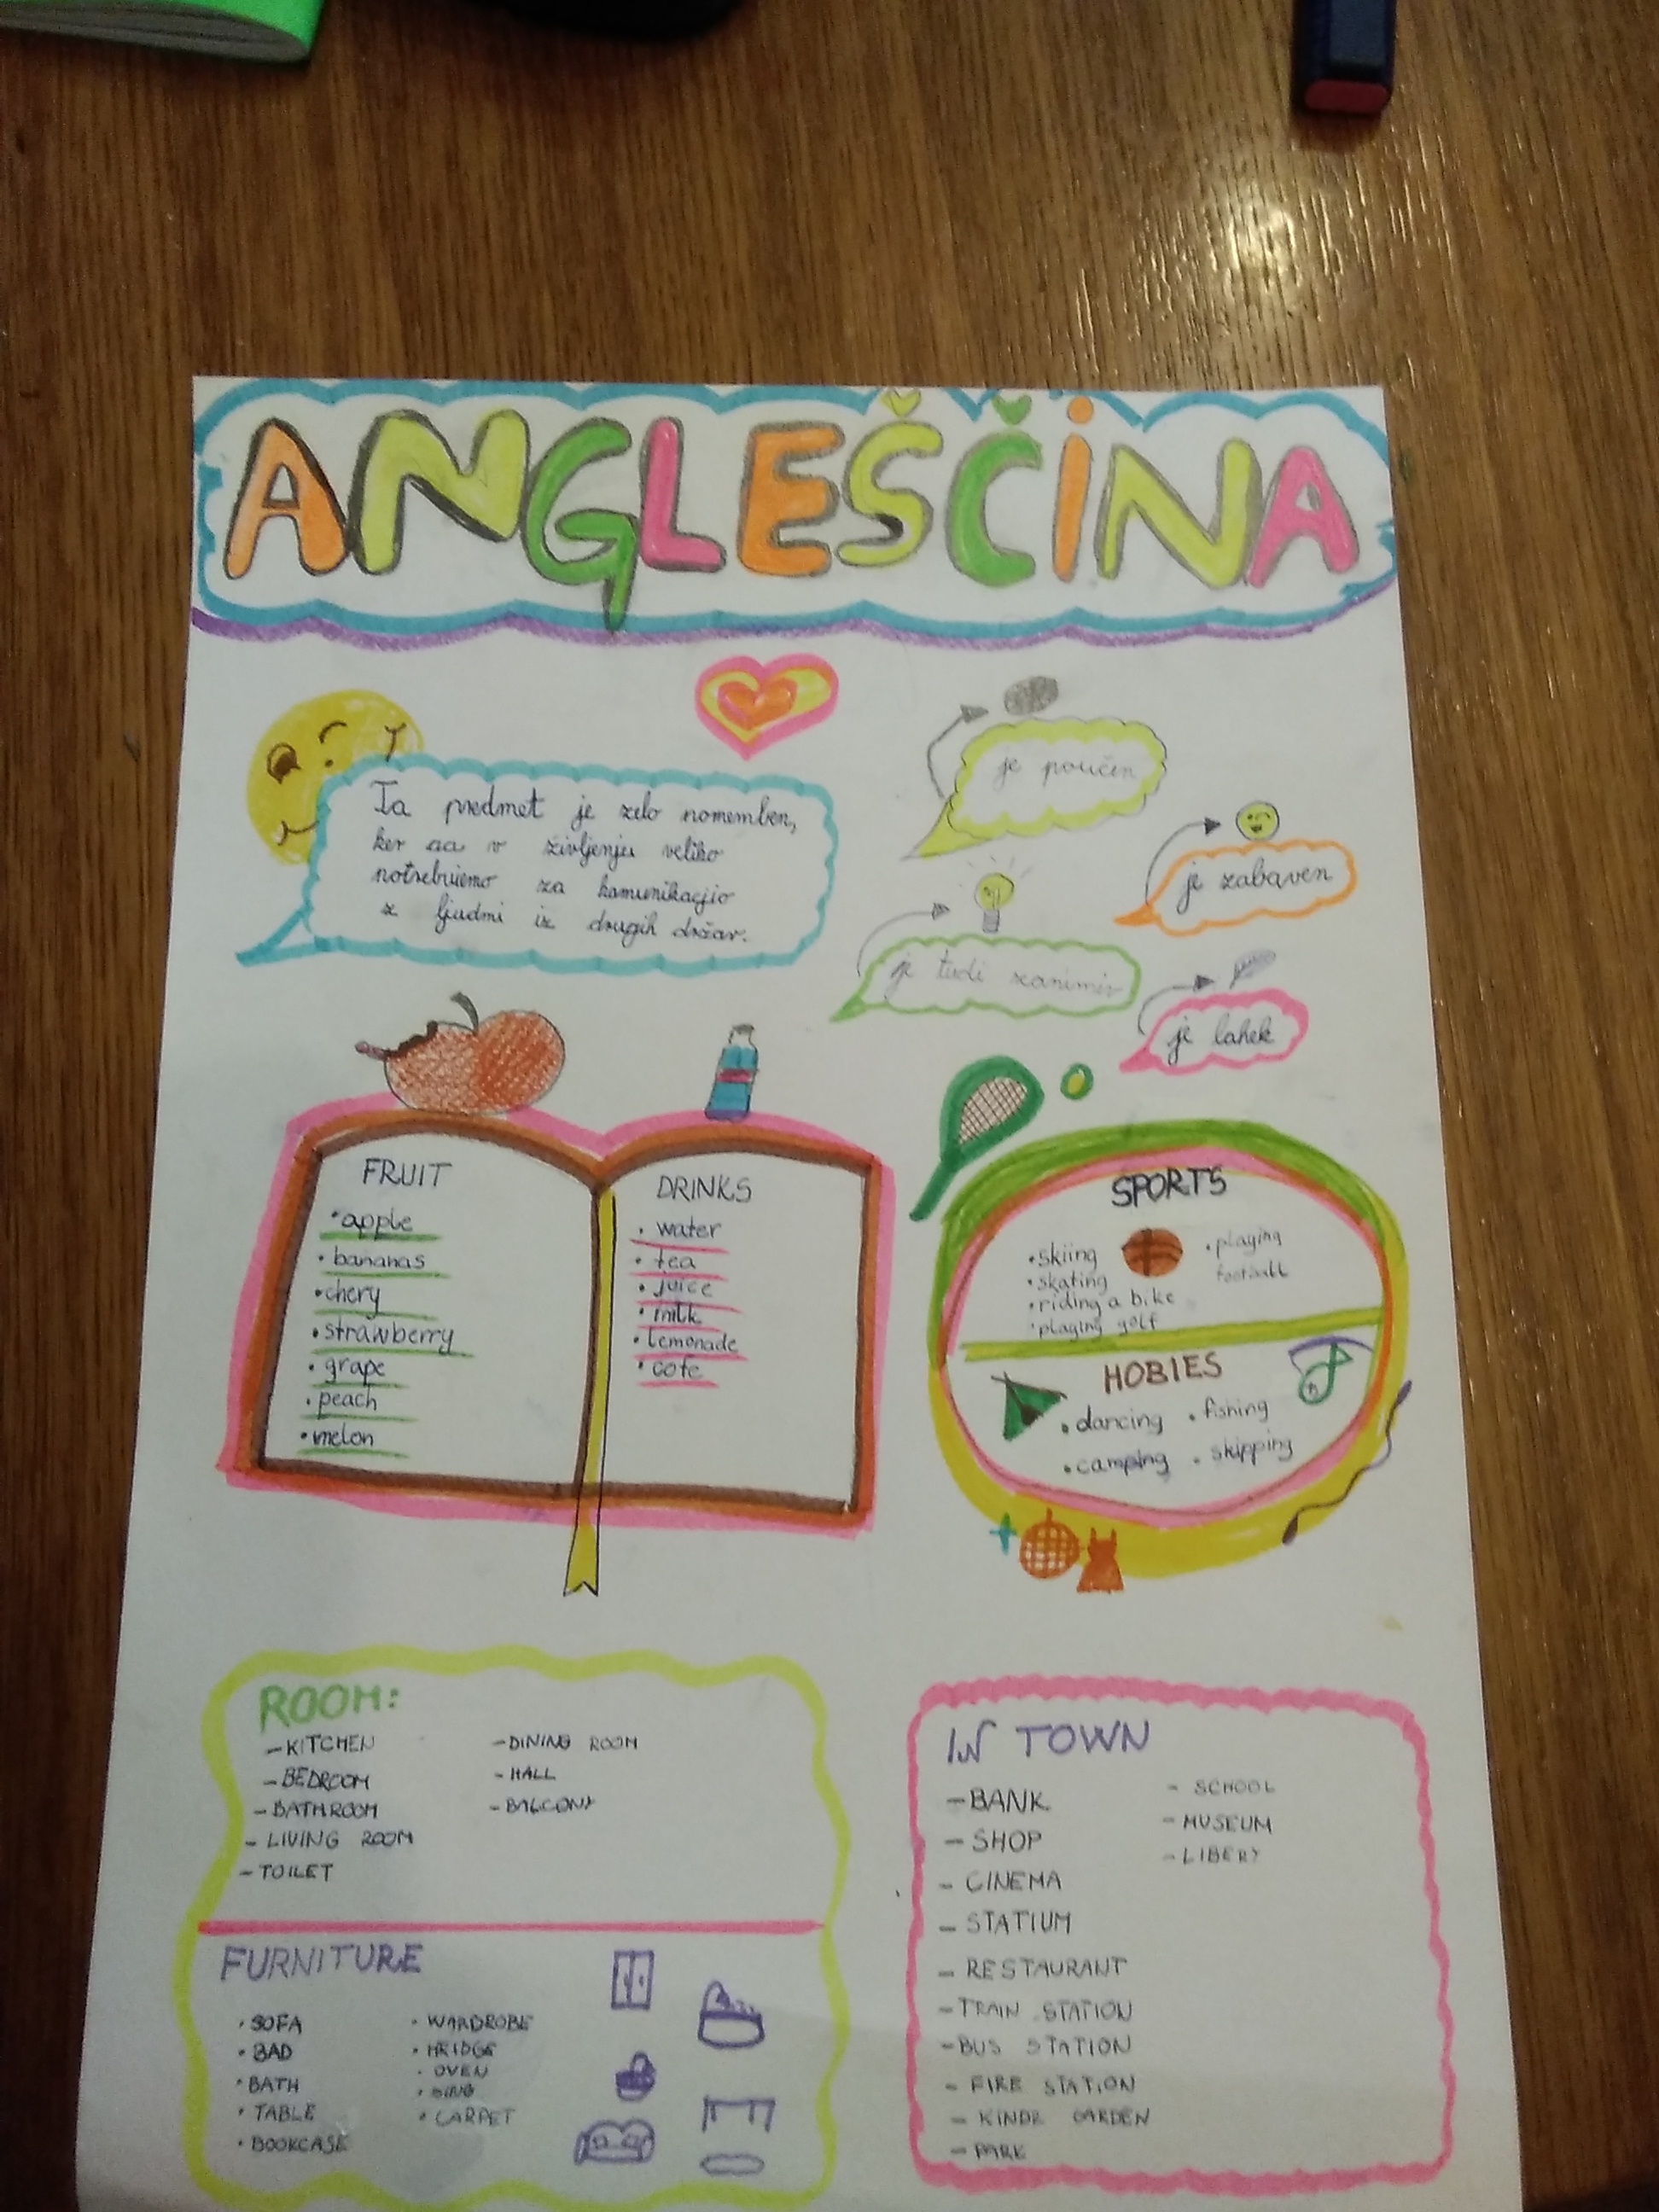 ANGLEŠČINA
Ta predmet je zelo pomemben,
ker ga v življenju veliko
potrebujemo za komunikacijo
z ljudmi iz drugih držav.
je poučen
je zabaven
je tudi zanimiv
je lahek
FRUIT
• apple
• bananas
• chery
• strawberry
• grape
• peach
• melon
DRINKS
• water
• tea
• juice
• milk
• lemonade
• cofe
SPORTS
• skiing
• skating
• riding a bike
• playing golf
• playing
football
HOBIES
• dancing
• camping
• fishing
• skipping
ROOM:
- KITCHEN
- BEDROOM
- BATHROOM
- LIVING ROOM
- TOILET
- DINING ROOM
- HALL
- BALCONY
FURNITURE
• SOFA
• BAD
• BATH
• TABLE
• BOOKCASE
• WARDROBE
• OVEN
• CARPET
IN TOWN
- BANK
- SHOP
- CINEMA
- STATIUM
- RESTAURANT
- TRAIN STATION
- BUS STATION
- FIRE STATION
- KINDR GARDEN
- PARK
- SCHOOL
- MUSEUM
- LIBERY